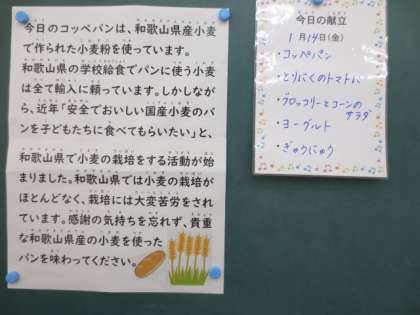 今日のコッペパンは、和歌山県産小麦
で作られた小麦粉を使っています。
和歌山県の学校給食でパンに使う小麦
は全て輸入に頼っています。しかしなが
ら、近年「安全でおいしい国産小麦のパ
ンを子どもたちに食べてもらいたい」と、
和歌山県で小麦の栽培をする活動が始
まりました。和歌山県では小麦の栽培が
ほとんどなく、栽培には大変苦労をされ
ています。感謝の気持ちを忘れず、貴重
な和歌山県産の小麦を使った
パンを味わってください。
今日の献立
1月14日(金)
・コッペパン
・とりにくのトマトに
・ブロッコリーとコーンの
サラダ
・ヨーグルト
・ぎゅうにゅう